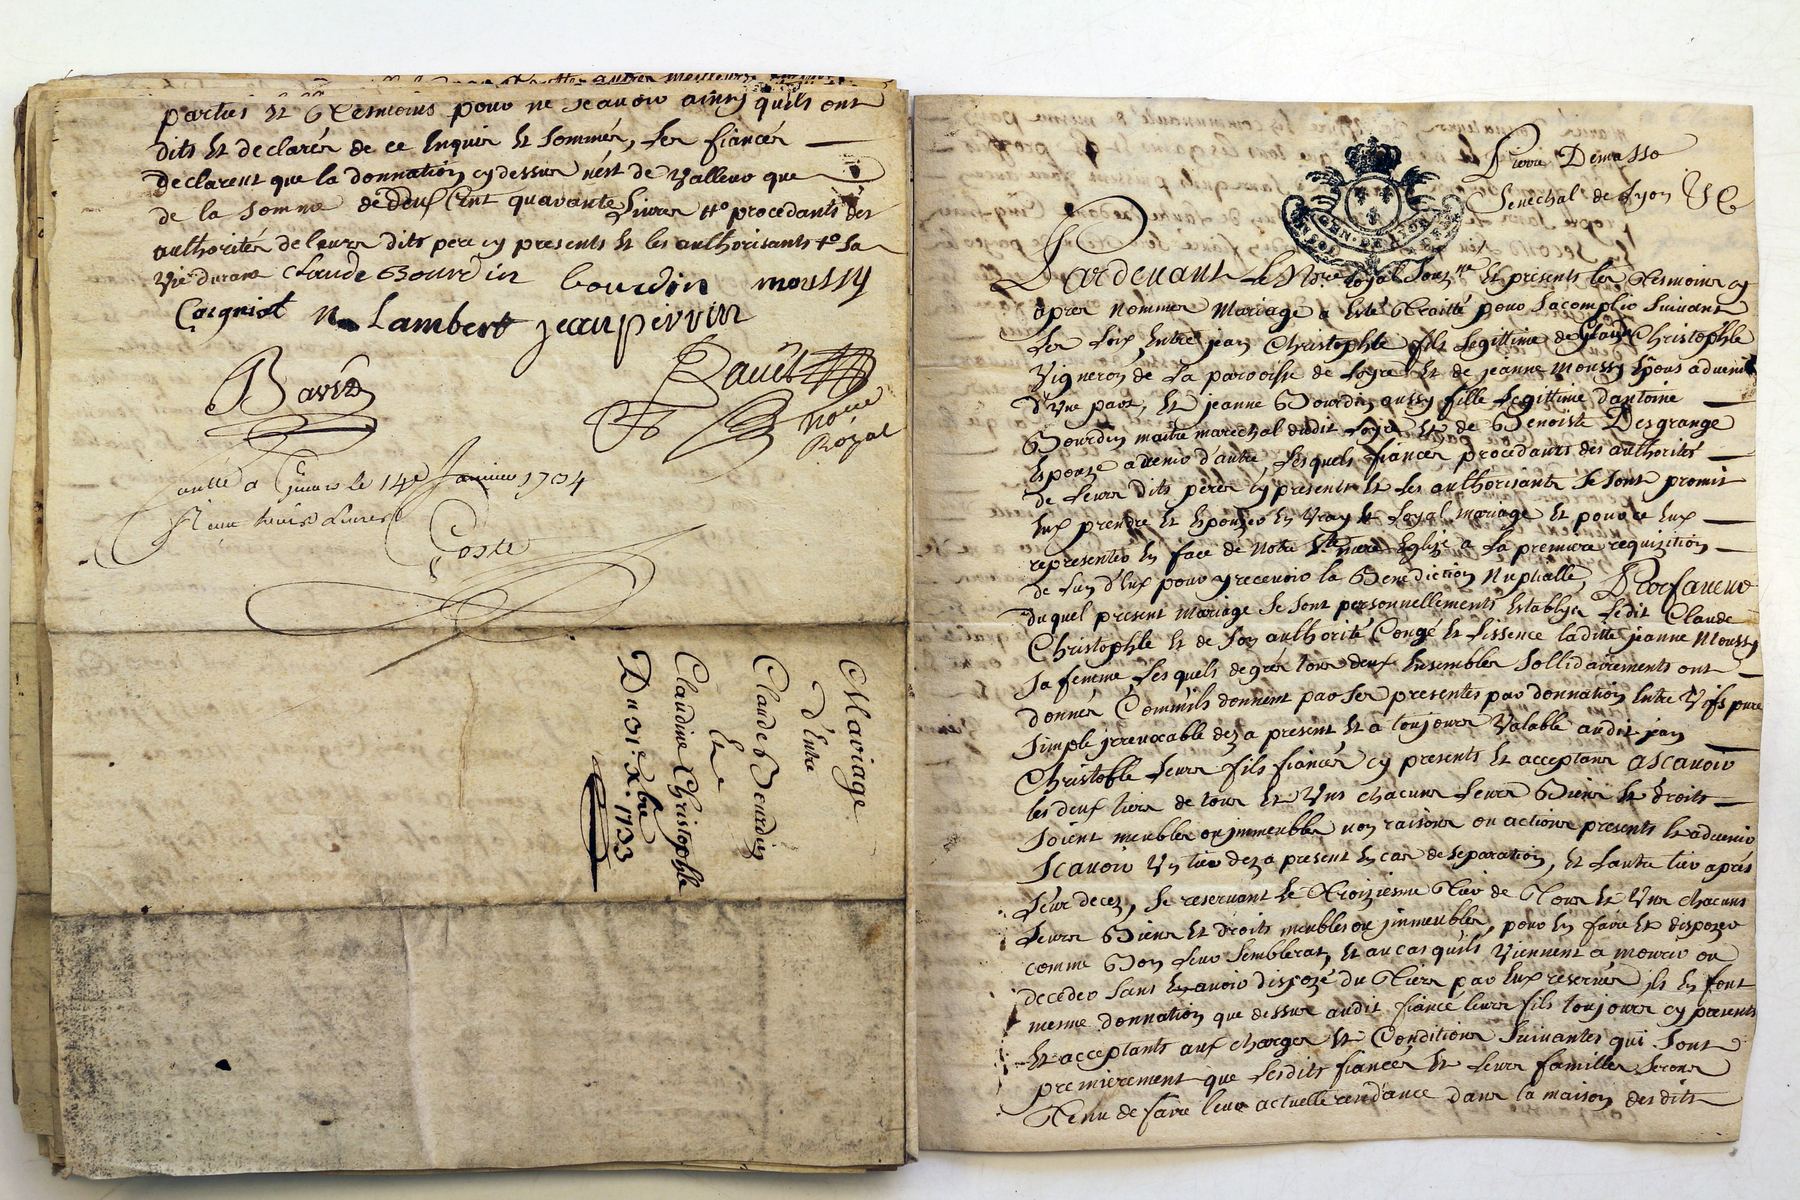 parties et tesmoins pour ne scavoir ainsy quils ont
dits et declarés de ce enquis et sommés, les fiancés
declarent que la donnation cy dessus n'est de valleur que
de la somme de deux cent quarante livres procedants des
authorités de leurs dits peres cy presents et les authorisants sa
vie durant Claude Bourdin bourdin moussy
Caigniot Lambert jean perrin
Bavit
Bavit
No.re
Royal
a le 14e Janvier 1704
livres
Coste
Mariage
d'Entre
Claude Bourdin
Et
Claudine Christophle
Du 31e Xbre 1733
Pierre Demasso
Senéchal de Lyon &c
GEN. DE LYON
Pardevant Le No.re royal Sous.né et presents les tesmoins cy
apres nommes Mariage a esté traité pour sacomplir suivant
les loix, entre jean Christophle fils legittime de Claude Christophle
vigneron de la paroisse de Loyre et de jeanne Moussy Epoux advenir
d'une part, et jeanne Bourdin aussy fille legittime d'antoine
Bourdin maitre marechal dudit Loyre et de Benoiste Desgrange
Epouze advenir d'autre, lesquels fiancés procedants des authorités
de leurs dits peres cy presents et les authorisants se sont promit
eux prendre et epouzer en vray et loyal mariage et pour ce eux
representer en face de notre Ste mere Eglize a la premiere requizition
de lun d'eux pour y recevoir la Benediction Nuptialle, En faveur
duquel present mariage se sont personnellements establys ledit Claude
Christophle et de son authorité Congé et lissence laditte jeanne Moussy
sa femme lesquels de grés tous deux ensembles sollidairements ont
donnés Comm'ils donnent par ses presentes par donnation entre vifs pure
simple irrevocable dez a present et a toujours valable audit jean
Christofle leurs fils fiancés cy presents et acceptans ascavoir
les deux tiers de tous et uns chacuns leurs Biens et droits
soient meubles ou immeubles non raisons ou actions presents et advenir
scavoir un tier dez a present en cas de separation, et l'autre tier aprés
leur decez, se reservant le troiziesme tier de tous et uns chacuns
leurs Biens et droits meubles ou immeubles, pour en faire et dispozer
comme Bon leur semblerat, et au cas qu'ils viennent a mourir ou
deceder sans en avoir dispozé du tiers par eux reservés ils en font
mesme donnation que dessus audit fiancé leurs fils toujours cy presents
et acceptants aux charges et Conditions suivantes qui sont
premierement que lesdits fiancés et leurs familles serons
tenu de faire leur actuelle residance dans la maison desdits